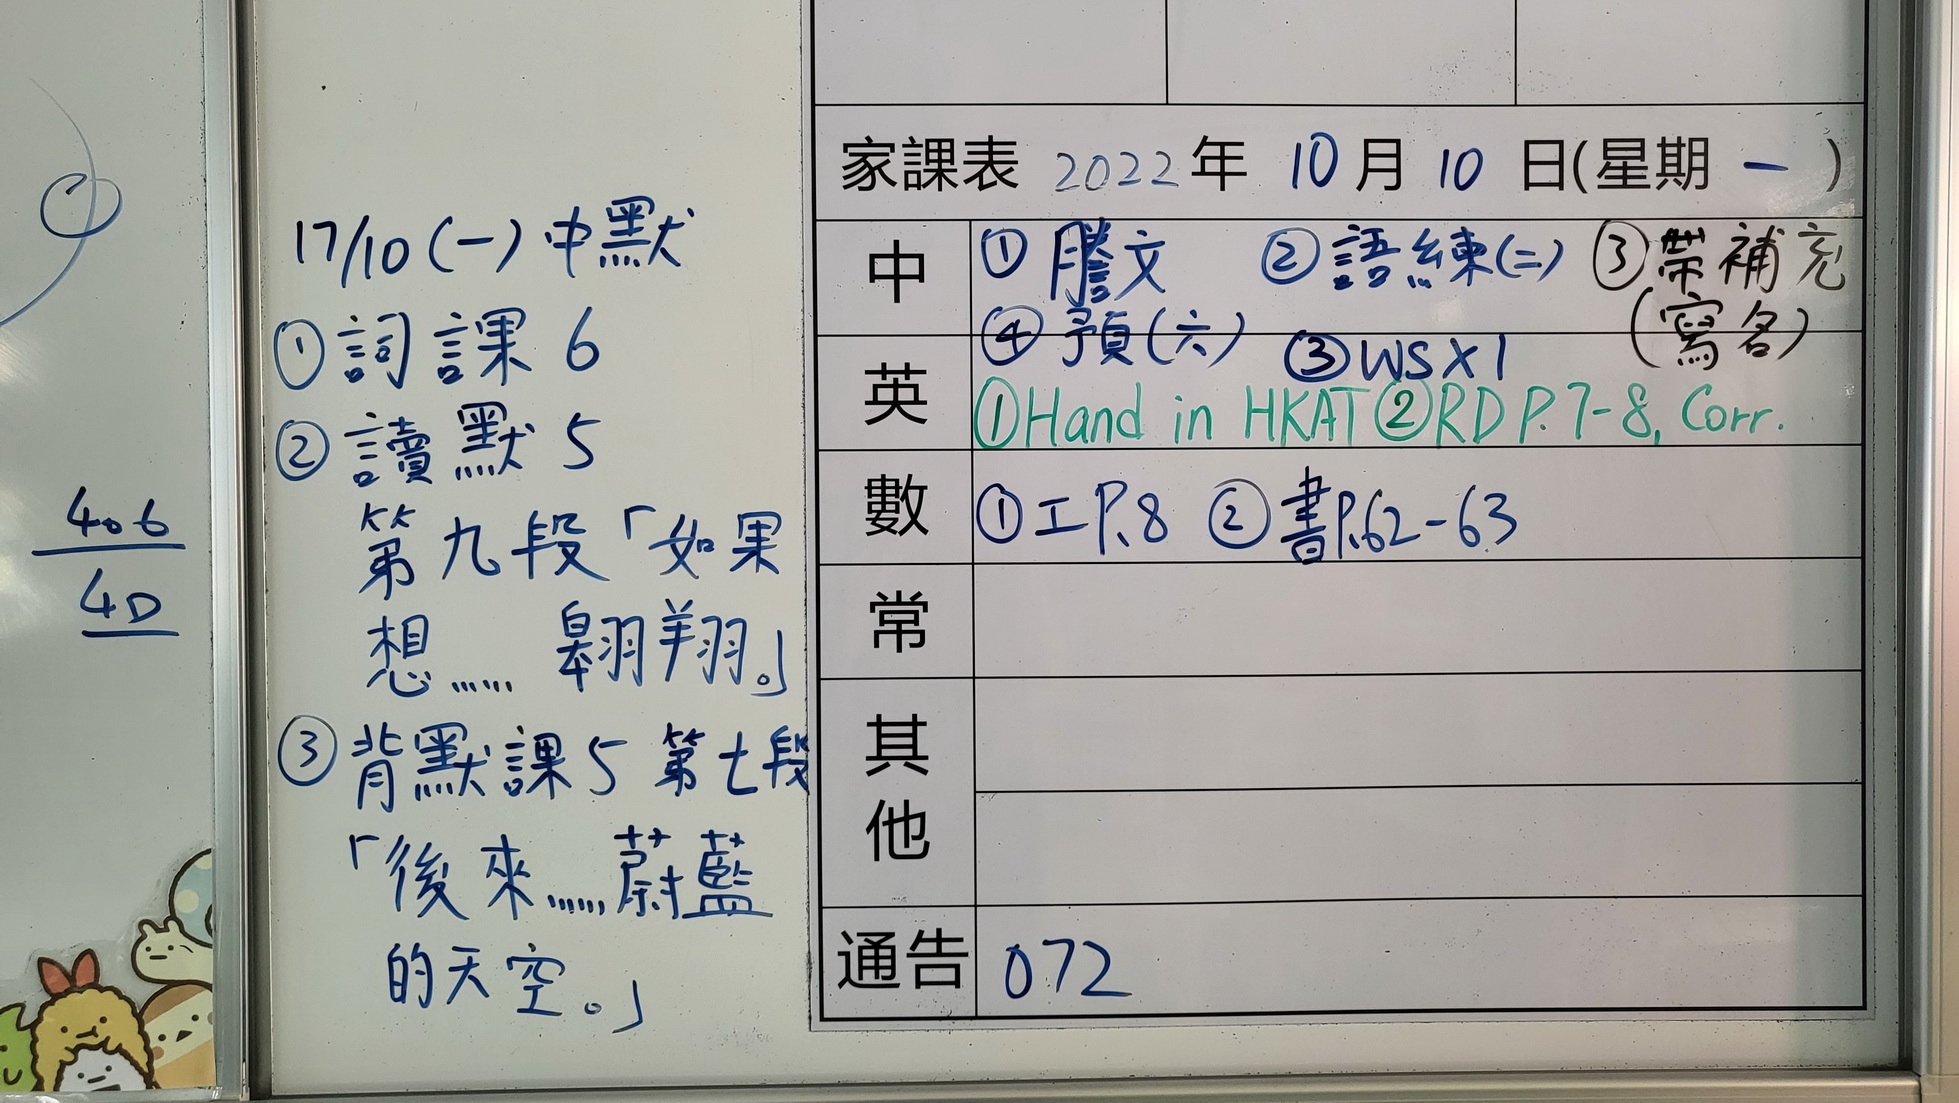 406
4D
17/10(一)中默
①詞 課 6
②讀 默 5
第九段「如果
想…… 翱翔。」
③背默課5 第七段
「後來……蔚藍
的天空。」
家課表 2022年 10月 10 日(星期 一 )
中 ①謄文 ②語練(二) ③帶補充
(寫名)
④預(六)
英 ③WS X 1
①Hand in HKAT ②RD P.7-8, Corr.
數 ①工P.8 ②書P.62-63
常
其他
通告 072